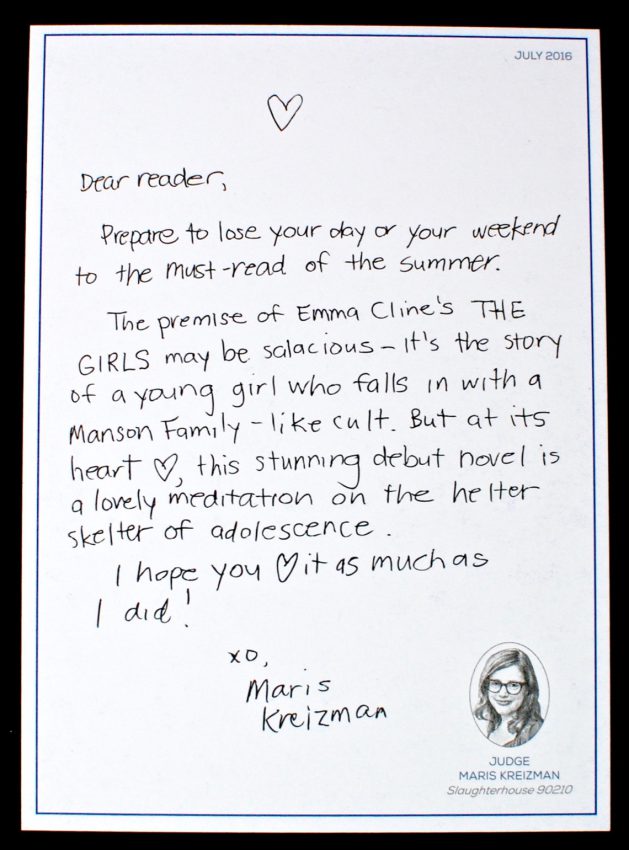 JULY 2016
♡
Dear reader,
Prepare to lose your day or your weekend
to the must-read of the summer.
The premise of Emma Cline's THE
GIRLS may be salacious – it's the story
of a young girl who falls in with a
Manson Family – like cult. But at its
heart ♡, this stunning debut novel is
a lovely meditation on the helter
skelter of adolescence.
I hope you ♡ it as much as
I did!
xo,
Maris
Kreizman
JUDGE
MARIS KREIZMAN
Slaughterhouse 90210